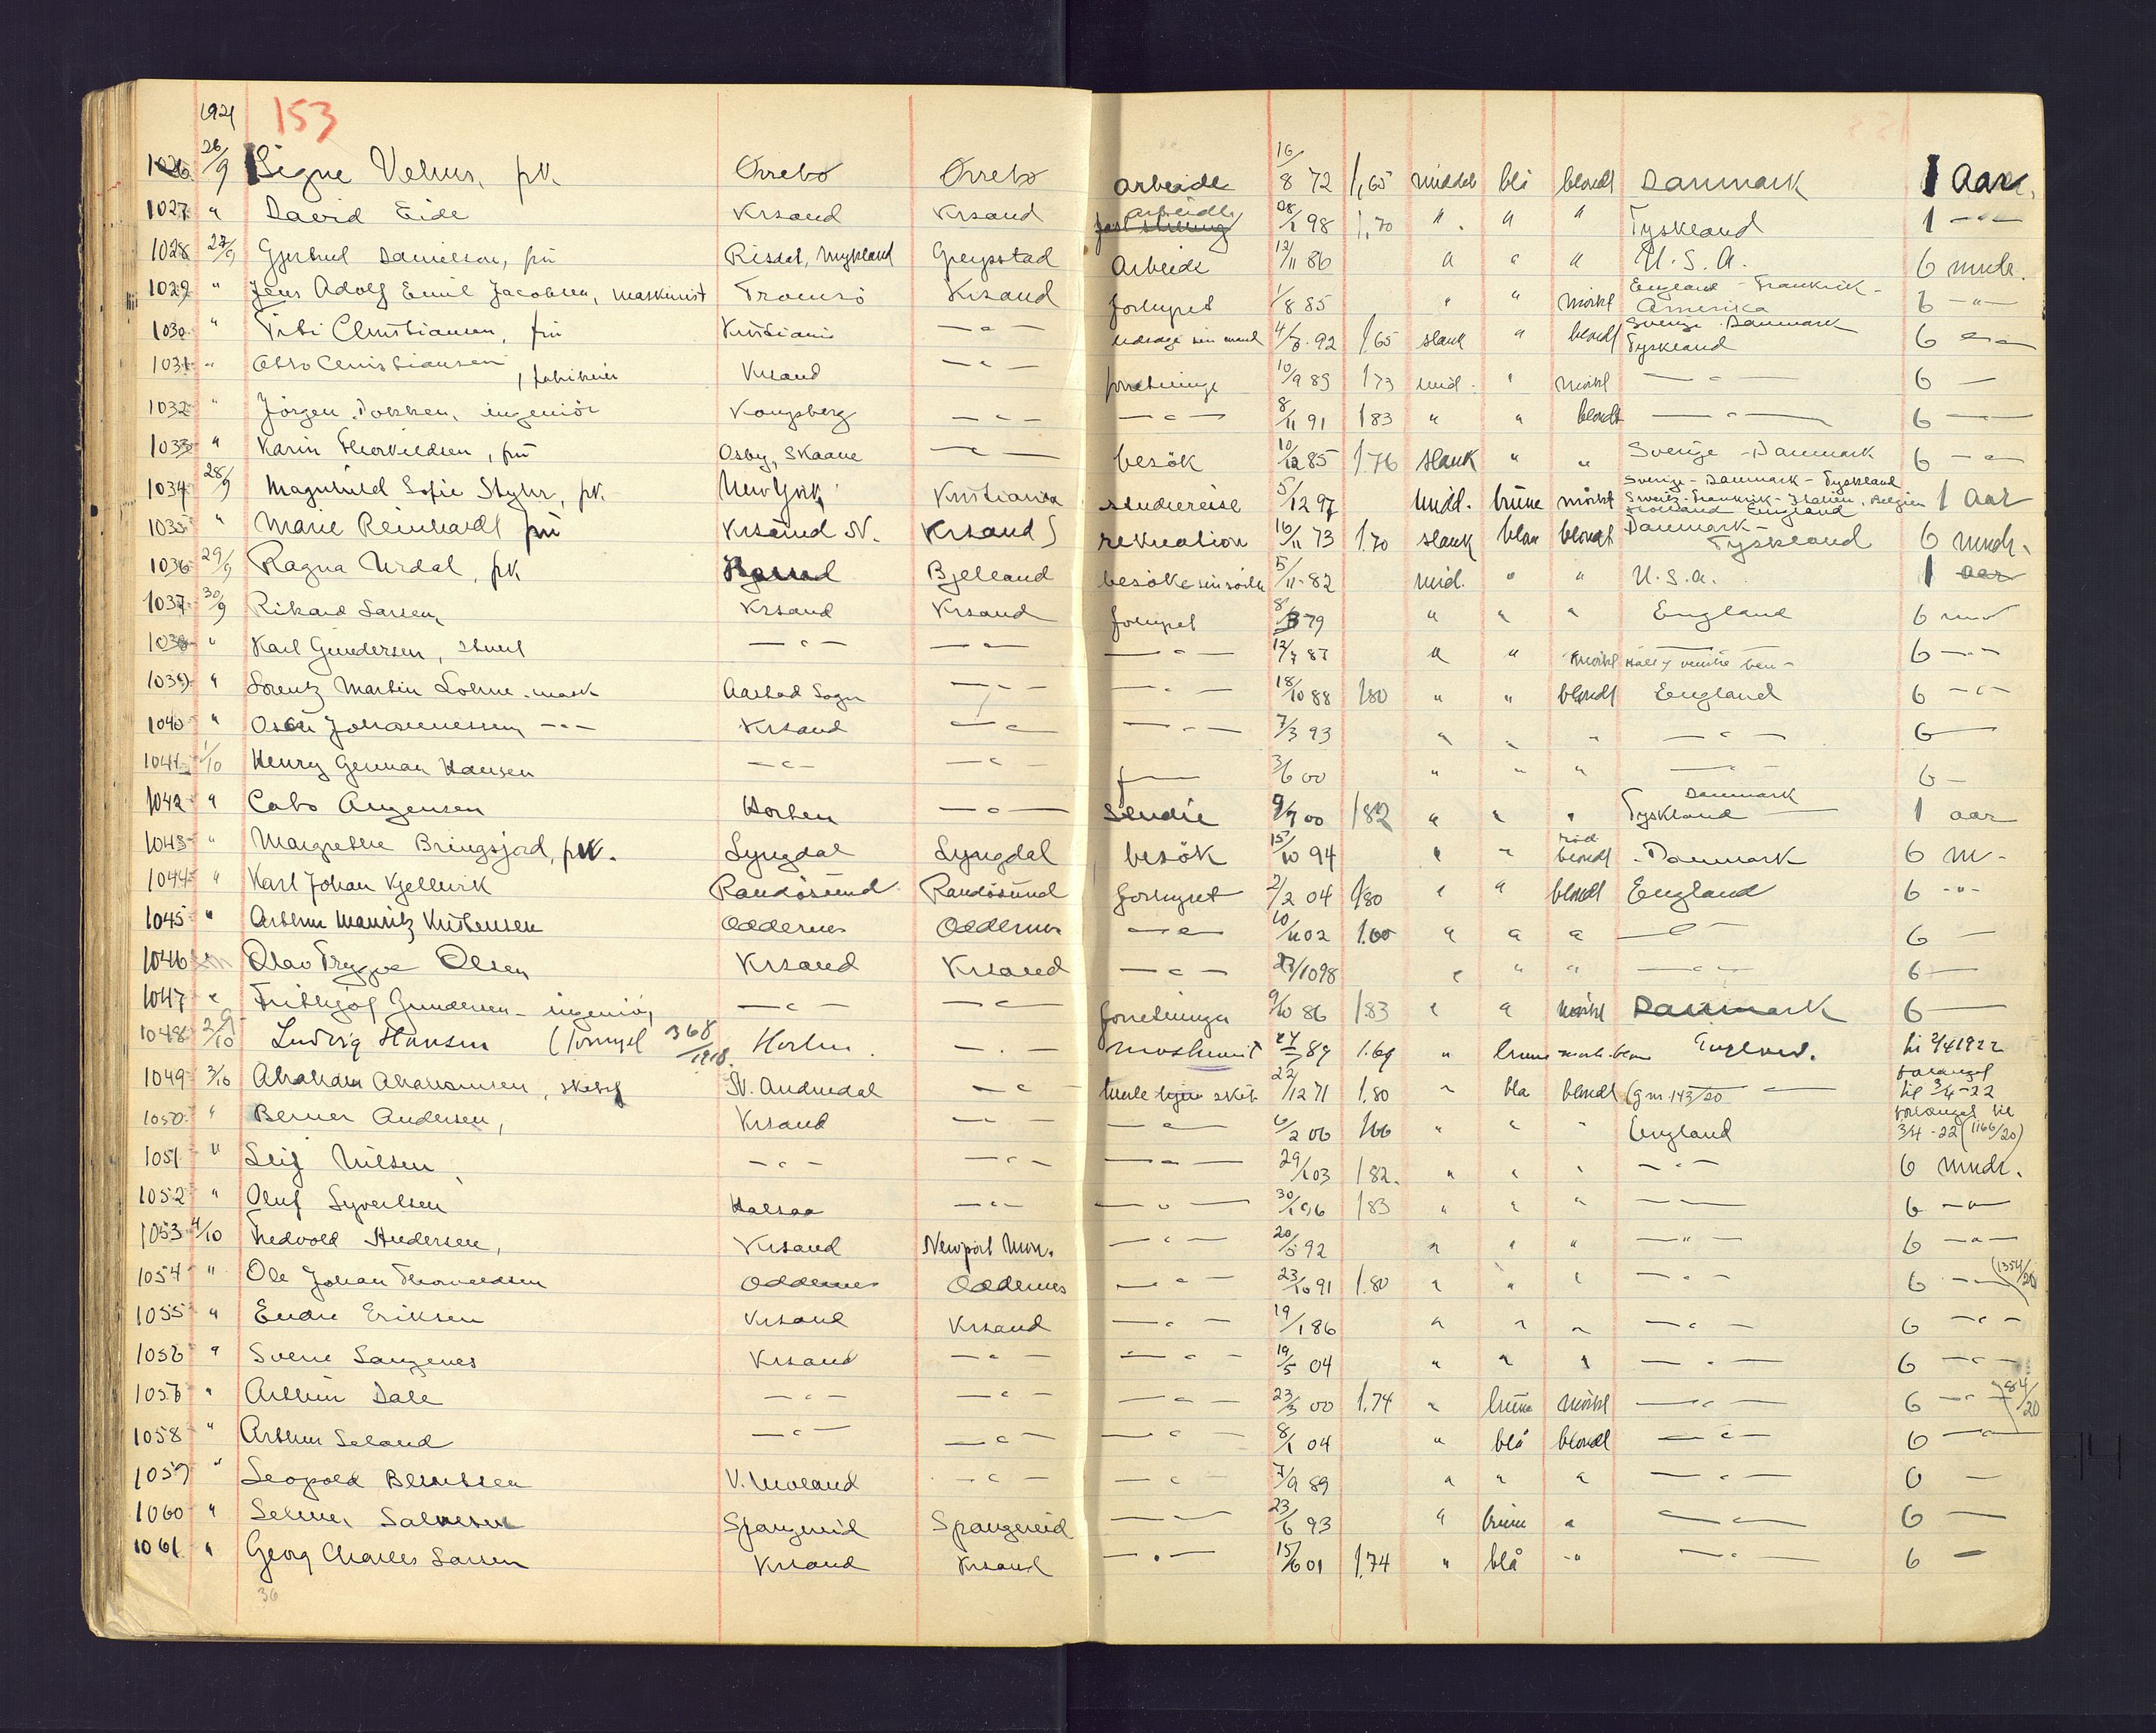 1921 153
1026 26/9 Signe Vehus, pk. Örrebö Örrebö arbeide 16/8 72 1,65 middel blå blondt Danmark 1 Aar.
1027 " David Eide Krsand Krsand arbeide 28/1 98 1,70 " " " Tyskland 1 - " -
1028 27/9 Gjertrud Danielsen, frü Risdal, Mykland Greipstad Arbeide 12/11 86 " " " U.S.A. 6 mndr.
1029 " Jens Adolf Emil Jacobsen, maskinist Tromsö Krsand forhyret 1/8 85 " " mörkt England - Frankrik - Amerika 6 - " -
1030 " Christiansen, frü Kristiania - " - ledsage sin mand 4/8 92 1,65 slank " blondt Sverige Danmark Tyskland 6 - " -
1031 " Otto Christiansen, Krsand - " - forretninger 10/9 89 173 mid. " mörkt - " - 6 -
1032 " Jörgen Dokken, ingeniör Kongsberg - " - - " - 8/11 91 183 " " blondt - " - 6 -
1033 " Karin Thorkildsen, frü Osby, Skaane - " - besök 10/12 85 1.76 slank " " Sverige - Danmark 6 - " -
1034 28/9 Magnhild Sofie Styhr, pk. New York Kristiania studiereise 5/12 97 midd. brüne mörkt Sverige - Danmark - Tyskland Sweitz - Frankrik - Italien, Belgien Holland England 1 Aar
1035 " Marie Reinhardt frü Krsand N. Krsand S rekreation 16/11 73 1.70 slank blaa blondt Danmark - Tyskland 6 mndr.
1036 29/9 Ragna Urdal, pk Bjelland besöke sin 5/11 82 mid. " " U.S.A. 1 aar
1037 30/9 Rikard Larsen Krsand Krsand forhyret 79 " " " England 6
1038 " Karl Gündersen, stuert - " - - " - - " - 12/7 87 " " mörkt 6 - " -
1039 " Lorentz Martin Lohne mask Aaslad Sogn - " - - " - 18/10 88 180 " " blondt England 6 - " -
1040 " Oscar Johannessen - " - Krsand - " - - " - 7/3 93 " " " - " - 6 -
1041 1/10 Henry German Hansen - " - - " - 3/6 00 " " " - " - 6 -
1042 " Cato Augensen Horten - " - Stüdie 9/9 00 182 " " " Danmark Tyskland 1 aar
1043 " Margrethe Bringsjord, pk. Lyngdal Lyngdal besök 15/10 94 " " röd blondt Danmark 6 m -
1044 " Karl Johan Kjellevik Randösund Randösünd forhyret 2/2 04 180 " " blondt England 6 - " -
1045 " Arthur Mauritz Kristensen Oddernes Oddernes - " - 10/11 02 1.60 " " " - " - 6 -
1046 Olav Trygve Olsen Krsand Krsand - " - 27/10 98 " " " - " - 6 -
1047 " Frithjof Gundersen - ingeniör - " - - " - forretninger 9/10 86 1.83 " " mörkt Danmark 6 -
1048 2/10 Ludvig Hansen (Fornyet 368/1918. Horten. - " - Maskinist 24/ 89 1.69 " brune England. til 2/4 1922
1049 3/10 Abraham Abrahamsen, N. Audnedal - " - 22/12 71 1.80 " bla blondt (gm. 143/20 - forlænget til 3/4-22
1050 " Berner Andersen, Krsand - " - - " - 6/2 06 166 " " " England forlænget til 3/4-22 (1166/20)
1051 " Leif Nilsen - " - - " - - " - 29/1 03 182. " " " - " - 6 mndr.
1052 " Oluf Syvertsen Halsaa - " - - " - 30/1 96 183 " " " - 6 - " -
1053 4/10 Andersen, Krsand Newport Mon. - " - 20/5 92 " " " - " - 6 - " -
1054 " Ole Johan Thorvaldsen Oddernes Oddernes - " - 23/10 91 1.80 " " " - " - 6 - (1354/20
1055 " Endre Eriksen Krsand Krsand - " - 19/1 86 " " " - " - 6 - " -
1056 " Sverre Langenes Krsand - " - - " - 19/5 04 " " " - " - 6 - " -
1057 " Arthür Dale - " - - " - - " - 23/3 00 1.74 " brüne mörkt - " - 6 - " - 84/20
1058 " Arthur Seland - " - - " - - " - 8/1 04 " blå blondt - " - 6 - " -
1059 " Leopold Berntsen V. Moland - " - - " - 7/9 89 " " " - " - 6 -
1060 " Selmer Salvesen Spangereid Spangereid - " - 23/6 93 " brüne " - " - 6 -
1061 " Georg Charles Larsen Krsand Krsand - " - 15/6 01 1.74 " blå - " - - " - 6 -
36